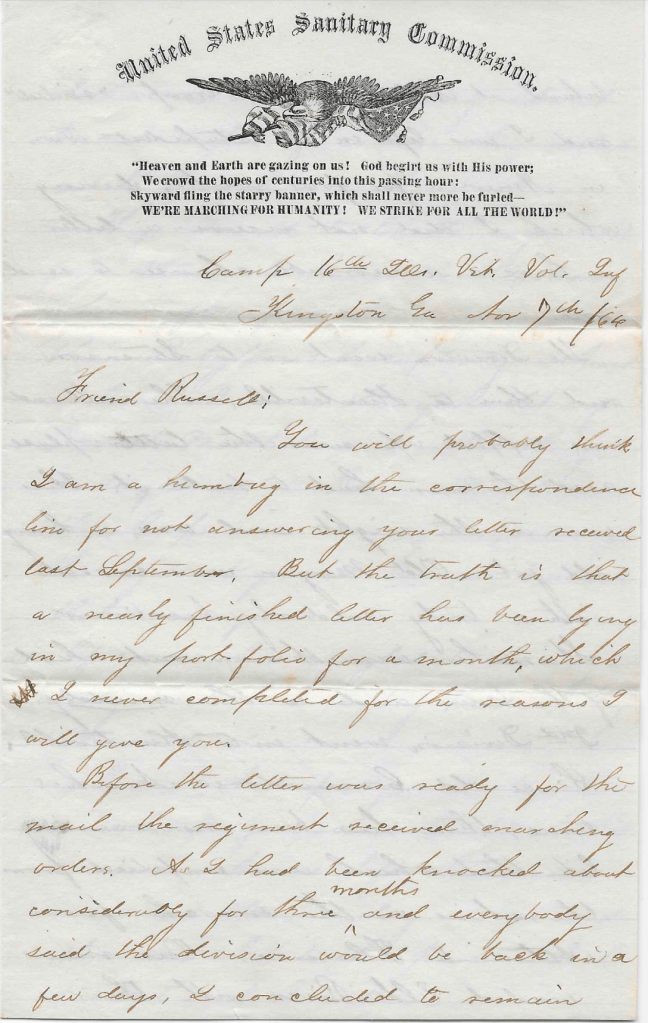 United States Sanitary Commission.
"Heaven and Earth are gazing on us! God begirt us with His power;
We crowd the hopes of centuries into this passing hour:
Skyward fling the starry banner, which shall never more be furled—
WE'RE MARCHING FOR HUMANITY! WE STRIKE FOR ALL THE WORLD!"
Camp 16th Ills. Vet. Vol. Inf
Kingston Ga Nov 7th /64
Friend Russell;
You will probably think
I am a humbug in the correspondence
line for not answering your letter received
last September. But the truth is that
a nearly finished letter has been lying
in my port folio for a month, which
I never completed for the reasons I
will give you.
Before the letter was ready for the
mail the regiment received marching
orders. As I had been knocked about
months
considerably for three ^ and everybody
said the division would be back in a
few days, I concluded to remain